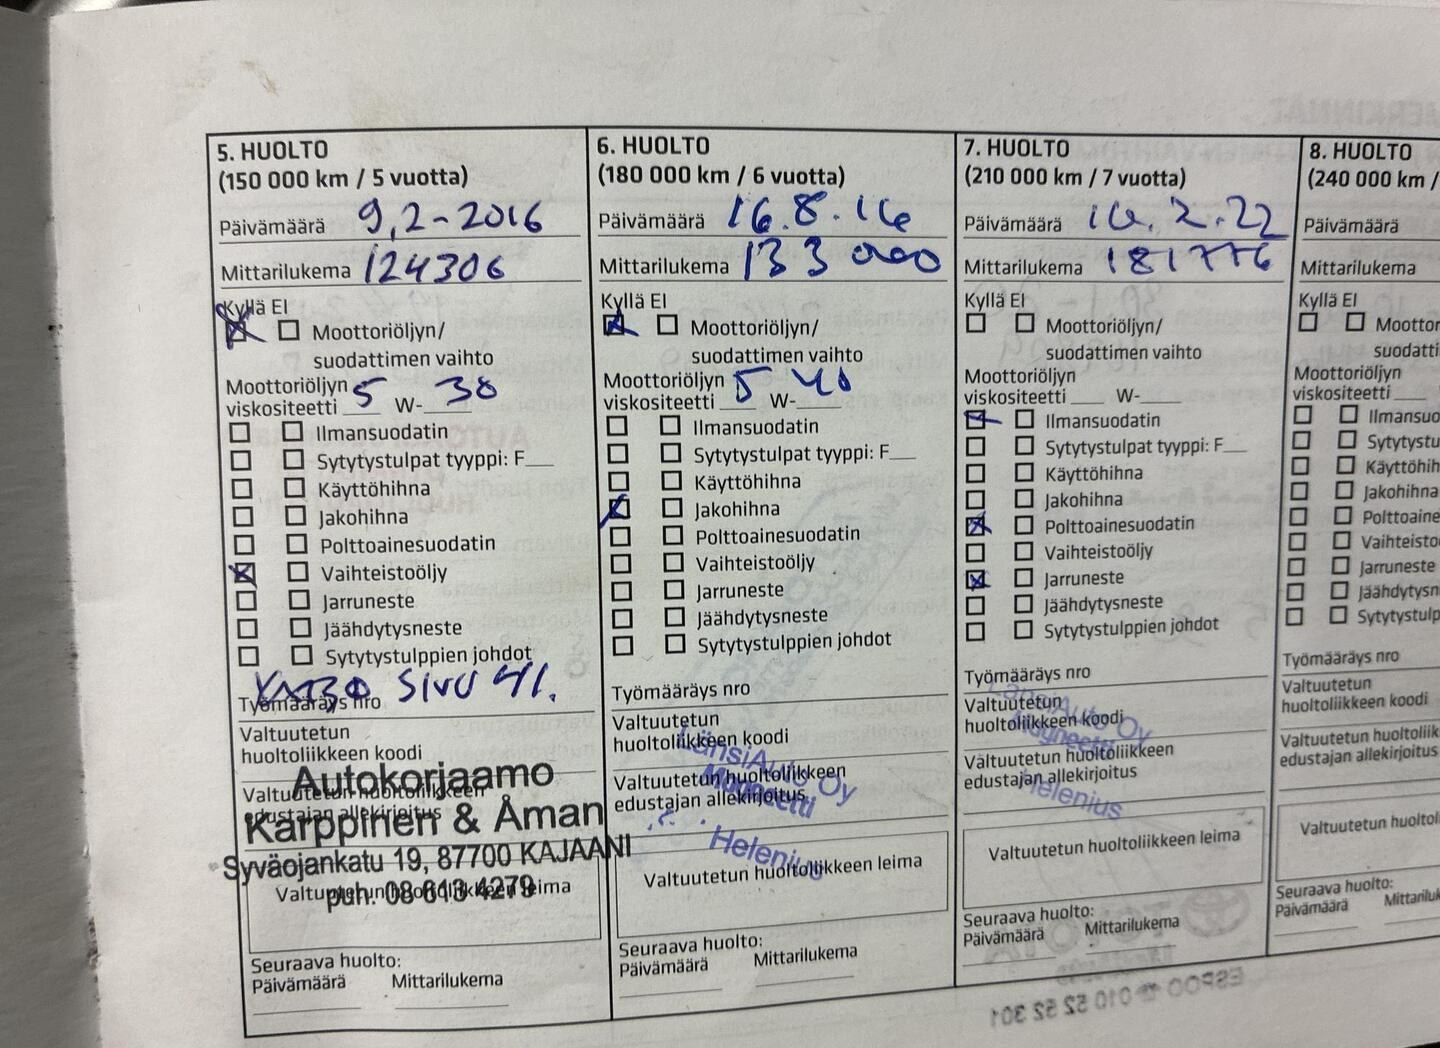 5. HUOLTO
(150 000 km / 5 vuotta)
Päivämäärä 9,2-2016
Mittarilukema 124306
Kyllä EI
Moottoriöljyn/
suodattimen vaihto
Moottoriöljyn
viskositeetti 5 W- 30
Ilmansuodatin
Sytytystulpat tyyppi: F
Käyttöhihna
Jakohihna
Polttoainesuodatin
Vaihteistoöljy
Jarruneste
Jäähdytysneste
Sytytystulppien johdot
KATSO SIVU 41.
Työmääräys nro
Valtuutetun
huoltoliikkeen koodi
Valtuutetun huoltoliikkeen
edustajan allekirjoitus
Autokorjaamo
Karppinen & Åman
Syväojankatu 19, 87700 KAJAANI
puh. 08 613 4279
Valtuutetun huoltoliikkeen leima
Seuraava huolto:
Päivämäärä Mittarilukema
6. HUOLTO
(180 000 km / 6 vuotta)
Päivämäärä 16.8.16
Mittarilukema 133 000
Kyllä EI
Moottoriöljyn/
suodattimen vaihto
Moottoriöljyn
viskositeetti 5 W- 40
Ilmansuodatin
Sytytystulpat tyyppi: F
Käyttöhihna
Jakohihna
Polttoainesuodatin
Vaihteistoöljy
Jarruneste
Jäähdytysneste
Sytytystulppien johdot
Työmääräys nro
Valtuutetun
huoltoliikkeen koodi
LänsiAuto Oy
Magneetti
Valtuutetun huoltoliikkeen
edustajan allekirjoitus
Helenius
Valtuutetun huoltoliikkeen leima
Seuraava huolto:
Päivämäärä Mittarilukema
7. HUOLTO
(210 000 km / 7 vuotta)
Päivämäärä 16.2.22
Mittarilukema 181776
Kyllä EI
Moottoriöljyn/
suodattimen vaihto
Moottoriöljyn
viskositeetti W-
Ilmansuodatin
Sytytystulpat tyyppi: F
Käyttöhihna
Jakohihna
Polttoainesuodatin
Vaihteistoöljy
Jarruneste
Jäähdytysneste
Sytytystulppien johdot
Työmääräys nro
LänsiAuto Oy
Magneetti
Valtuutetun
huoltoliikkeen koodi
Valtuutetun huoltoliikkeen
edustajan allekirjoitus
Helenius
Valtuutetun huoltoliikkeen leima
Seuraava huolto:
Päivämäärä Mittarilukema
8. HUOLTO
(240 000 km /
Päivämäärä
Mittarilukema
Kyllä EI
Moottor
suodatti
Moottoriöljyn
viskositeetti
Ilmansuo
Sytytystu
Käyttöhih
Jakohihna
Polttoaine
Vaihteisto
Jarruneste
Jäähdytysn
Sytytystulp
Työmääräys nro
Valtuutetun
huoltoliikkeen koodi
Valtuutetun huoltoliik
edustajan allekirjoitus
Valtuutetun huoltoli
Seuraava huolto:
Päivämäärä Mittariluk